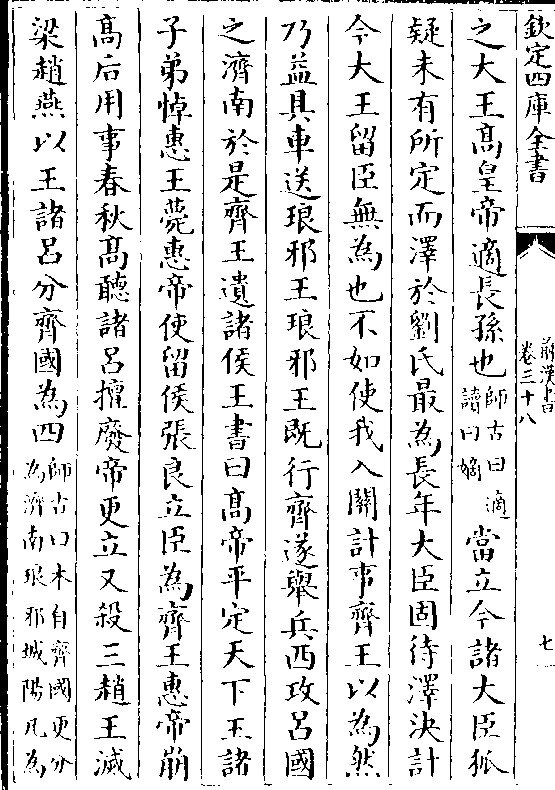 欽定四庫全書
前漢書
卷三十八
七
之大王高皇帝適長孫也師古曰適讀曰嫡當立今諸大臣狐
疑未有所定而澤於劉氏最為長年大臣固待澤決計
今大王留臣無為也不如使我入關計事齊王以為然
乃益具車送琅邪王琅邪王既行齊遂舉兵西攻吕國
之濟南於是齊王遺諸侯王書曰高帝平定天下王諸
子弟悼惠王薨惠帝使留侯張良立臣為齊王惠帝崩
高后用事春秋高聽諸吕擅廢帝更立又殺三趙王滅
梁趙燕以王諸吕分齊國為四師古曰本自齊國更分為濟南琅邪城陽凡為